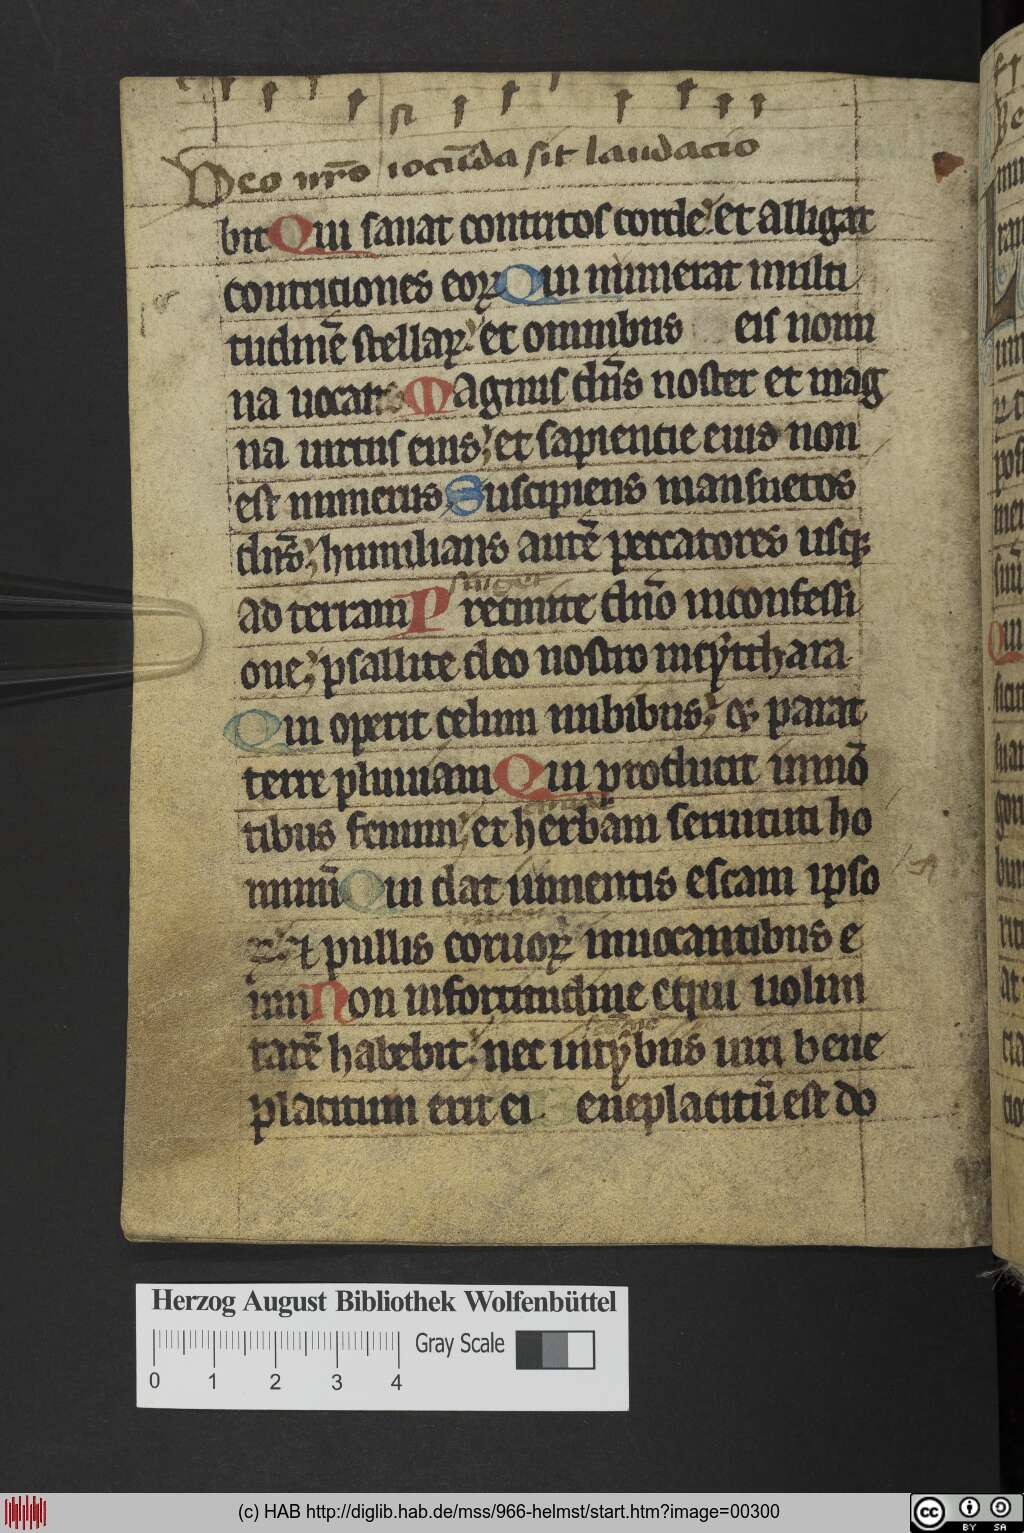 Deo nr̄o iocūda sit laudacio
bit Qui sanat contritos corde et alligat
contritiones eoꝝ Qui numerat multi
tudinē stellaꝝ et omnibus eis nomi
na uocans Magnus dn̄s noster et mag
na uirtus eius et sapientie eius non
est numerus Suscipiens mansuetos
dn̄s humilians autē peccatores usqꝫ
ad terram Precinite dn̄o in confessi
one psallite deo nostro in cythara
Qui operit celum nubibus et parat
terre pluuiam Qui producit in mō
tibus fenum et herbam seruituti ho
minū Qui dat iumentis escam ipso
ꝝ et pullis coruoꝝ inuocantibus e
um Non in fortitudine equi uolun
tatē habebit nec in tybus uiri bene
placitum erit ei Beneplacitū est do
Herzog August Bibliothek Wolfenbüttel
Gray Scale
0 1 2 3 4
(c) HAB http://diglib.hab.de/mss/966-helmst/start.htm?image=00300
cc BY SA